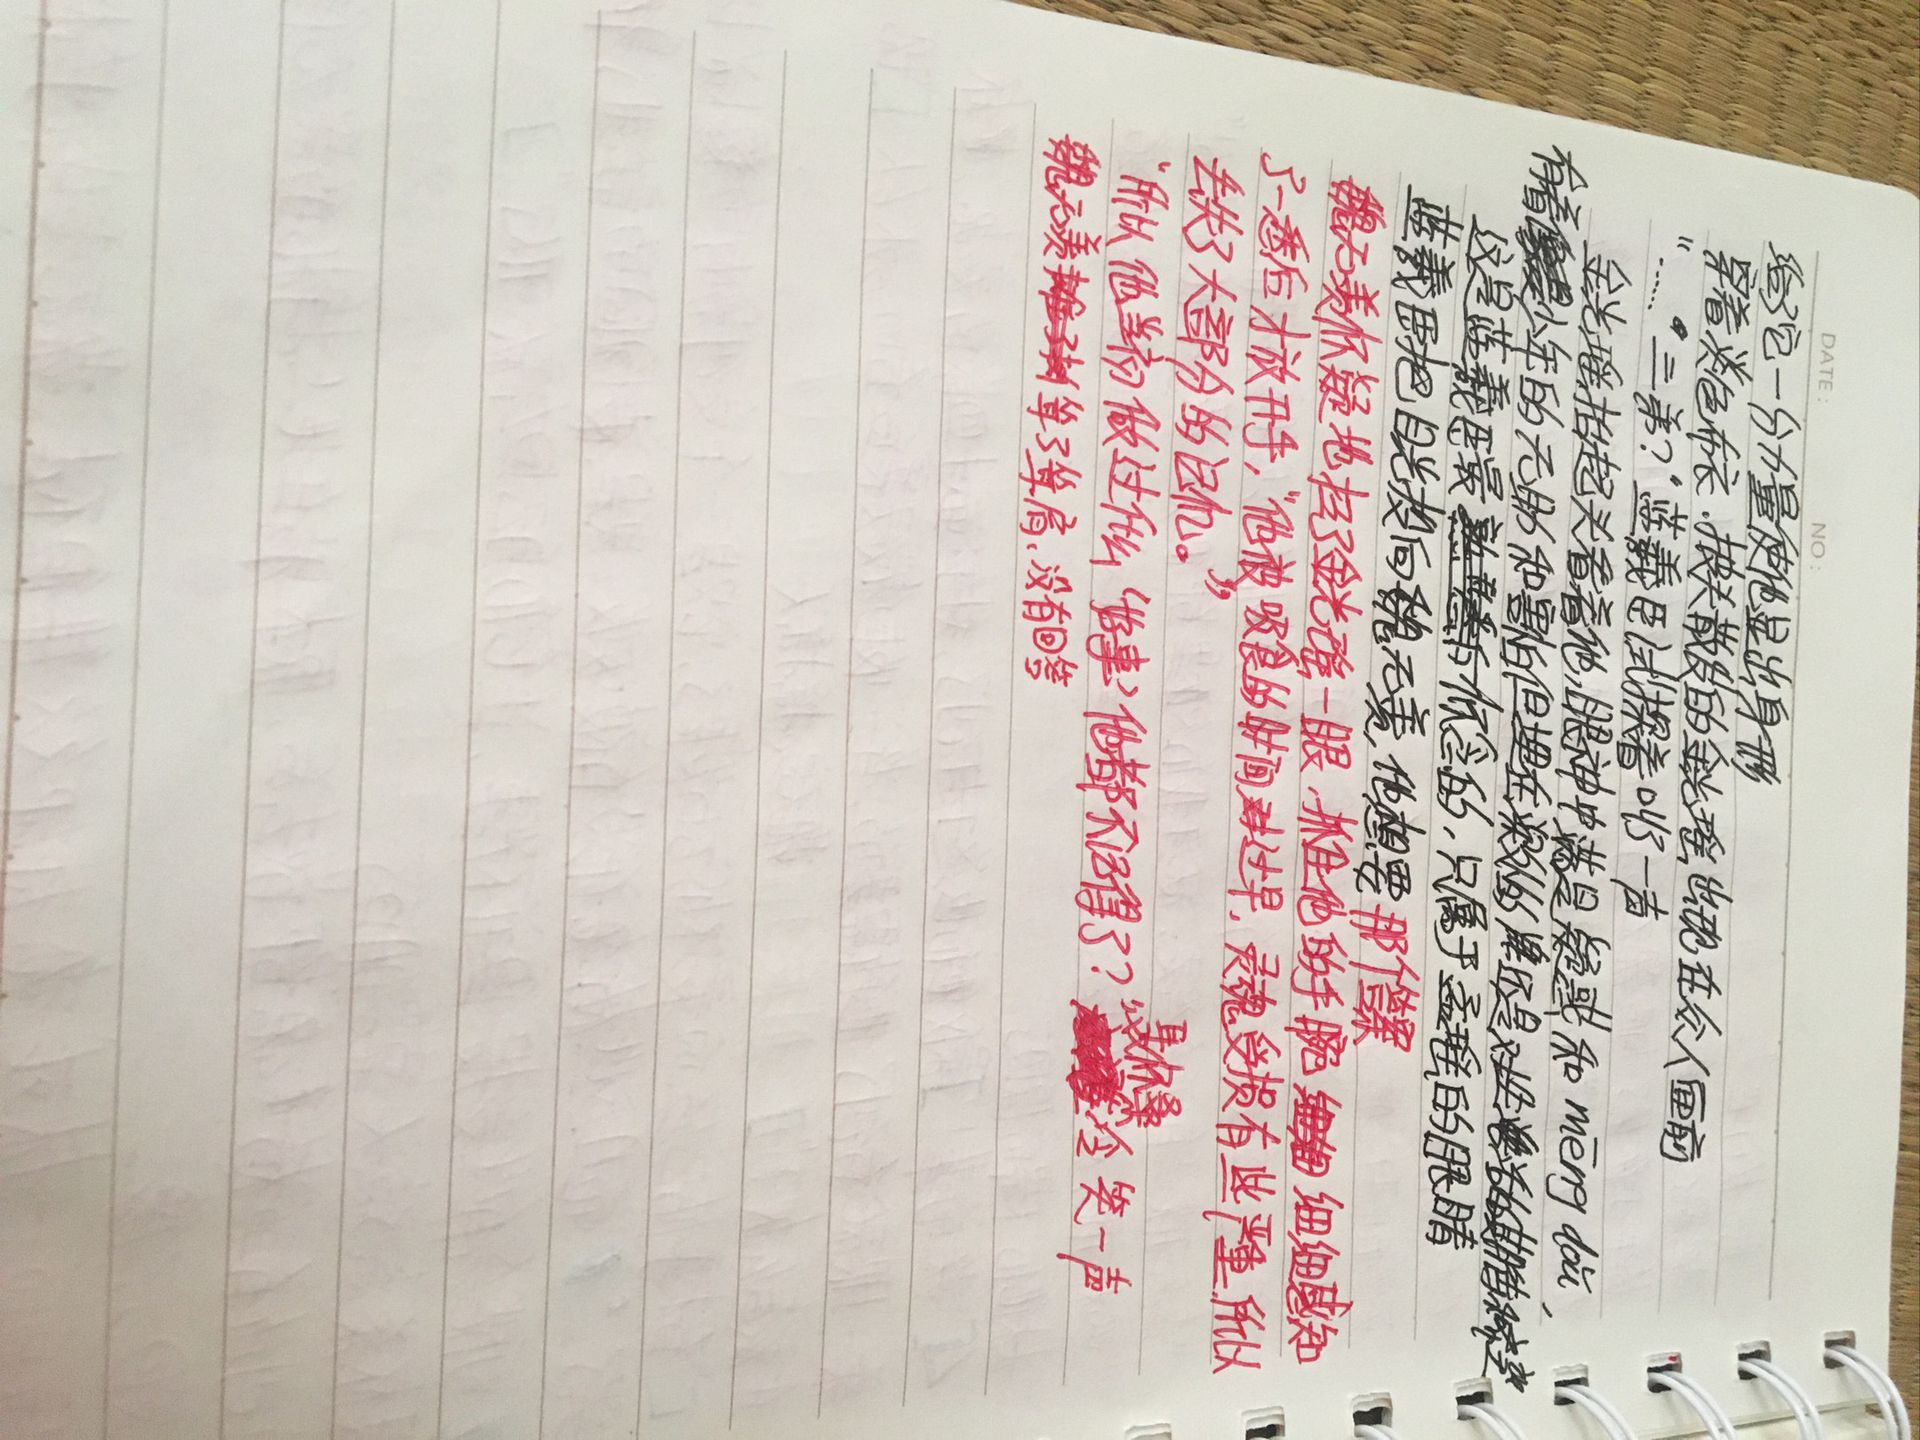 DATE:
NO:
给它一分力量使他显出身形
穿着淡色布衣.披头散发的金光瑶出现在众人面前
“……。三弟？”蓝曦臣试探着叫一声
金光瑶抬起头看着他,眼神中满是疑惑和 mēng dǒng,
有着少年的无助和害怕但埋在深处的像是对
这是蓝曦臣最熟悉的,只属于孟瑶的眼睛
蓝曦臣把目光投向魏无羡,他想要那个答案
魏无羡怀疑地扫了金光瑶一眼.抓住他的手腕细细感知
了一番后才放开手,“他被吸食的时间过早,灵魂受损有些严重.所以
丢失了大部分的记忆。”
“所以他当初做过什么‘好事’他都不记得了？”冷笑一声
魏无羡耸了耸肩.没有回答